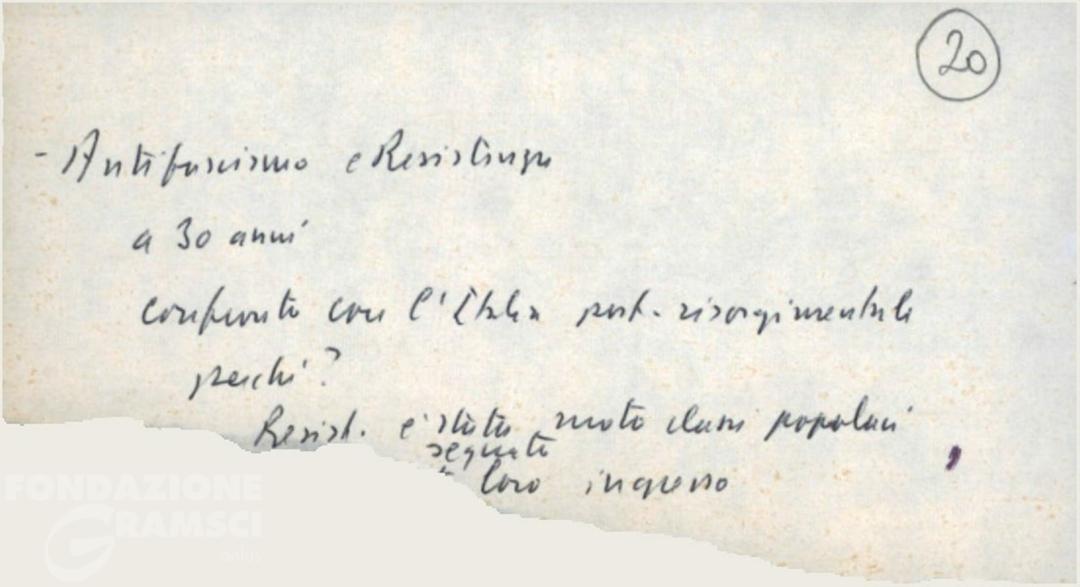 20
- Antifascismo e Resistenza
a 30 anni
confronto con l'Italia post-risorgimentale
perché?
Resist. è stata moto classi popolari
segnato
loro ingresso
FONDAZIONE
GRAMSCI
onlus